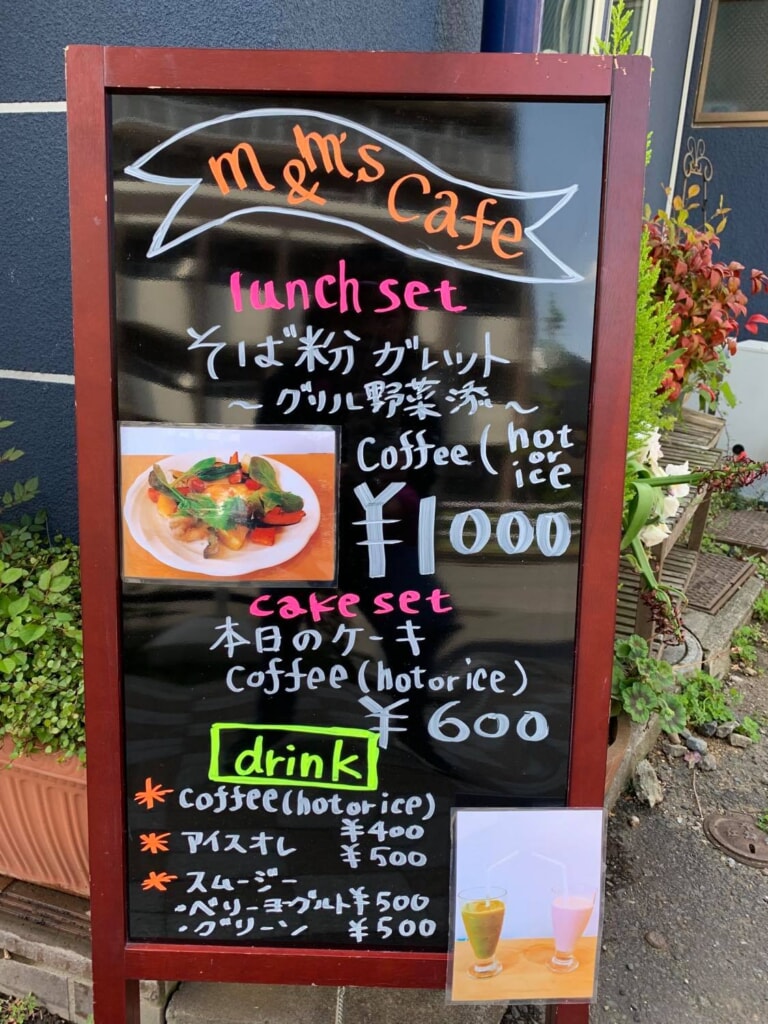 m&m's Cafe
lunch set
そば粉 ガレット
～グリル野菜添～
Coffee (hot or ice
¥1000
cake set
本日のケーキ
Coffee (hot or ice)
¥600
drink
* Coffee (hot or ice)
¥400
* アイスオレ ¥500
* スムージー
・ベリーヨーグルト ¥500
・グリーン ¥500